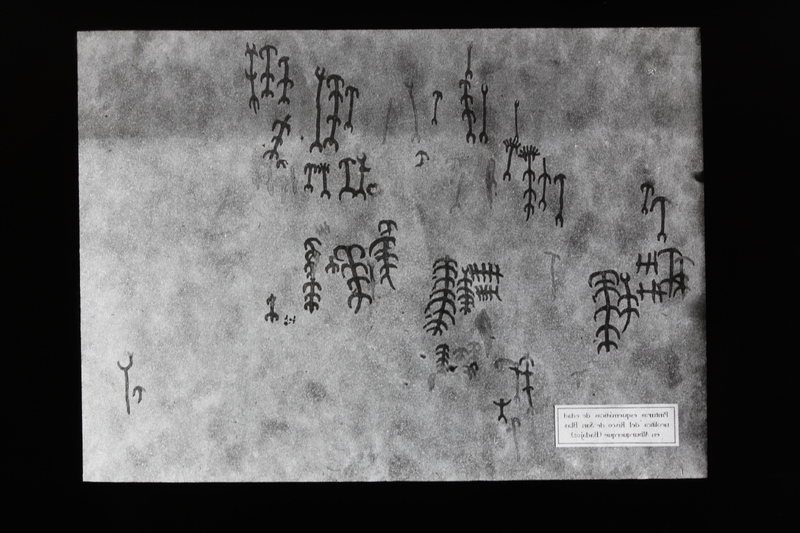 Pinturas esquemáticas de edad
neolítica del Risco de San Blas
en Alburquerque (Badajoz)